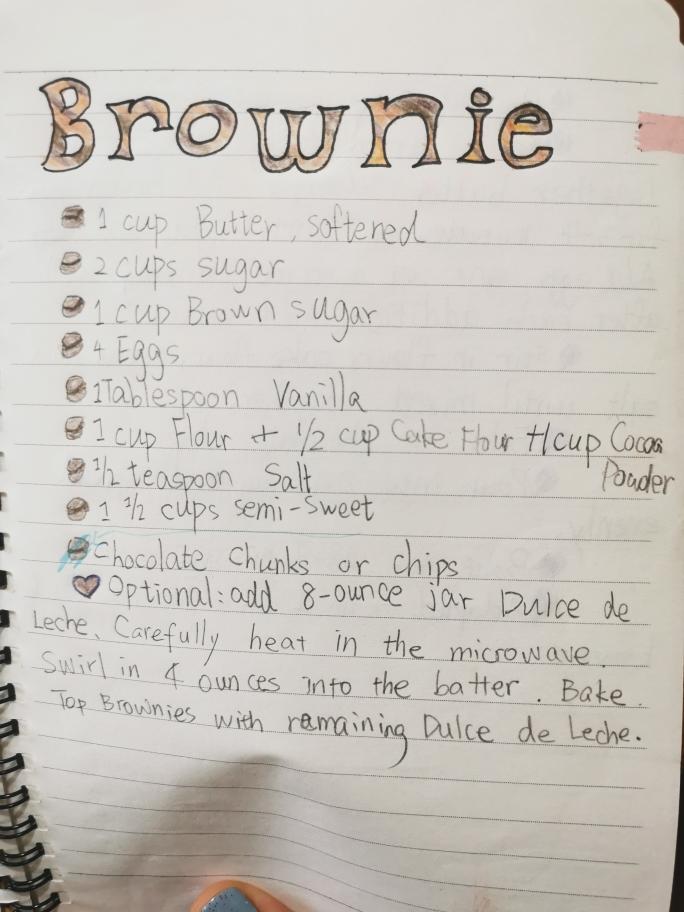 Brownie
1 cup Butter, softened
2 cups sugar
1 cup Brown sugar
4 Eggs
1Tablespoon Vanilla
1 cup Flour + 1/2 cup Cake Flour +1cup Cocoa
Powder
1/2 teaspoon Salt
1 1/2 cups semi-sweet
Chocolate chunks or chips
Optional: add 8-ounce jar Dulce de
Leche. Carefully heat in the microwave.
Swirl in 4 ounces into the batter. Bake.
Top Brownies with remaining Dulce de Leche.